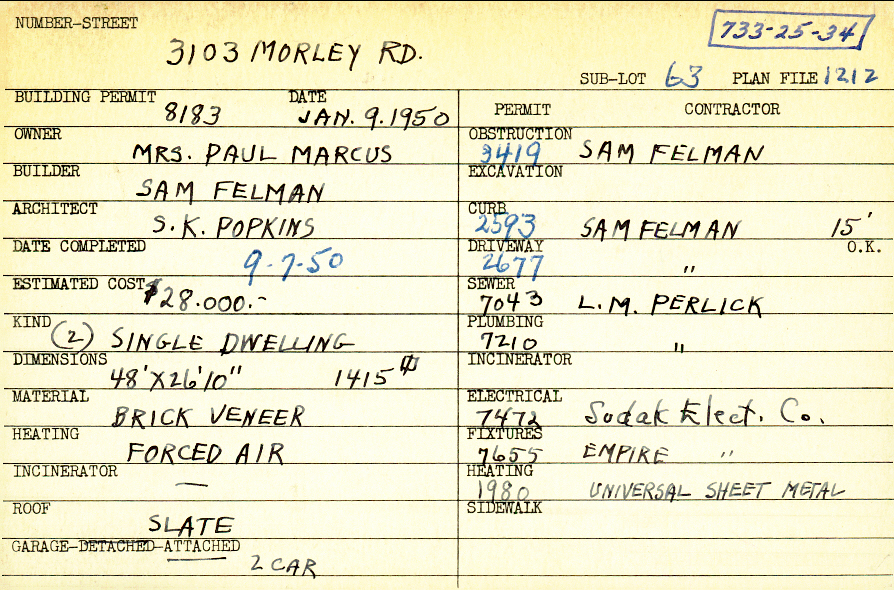 NUMBER-STREET
733-25-34
3103 MORLEY RD.
SUB-LOT 63 PLAN FILE 1212
BUILDING PERMIT 8183 DATE JAN. 9. 1950
OWNER MRS. PAUL MARCUS
BUILDER SAM FELMAN
ARCHITECT S.K. POPKINS
DATE COMPLETED 9-7-50
ESTIMATED COST $28.000.-
KIND (2) SINGLE DWELLING
DIMENSIONS 48'X26'10" 1415
MATERIAL BRICK VENEER
HEATING FORCED AIR
INCINERATOR —
ROOF SLATE
GARAGE-DETACHED-ATTACHED 2 CAR
PERMIT CONTRACTOR
OBSTRUCTION 3419 SAM FELMAN
EXCAVATION
CURB 2593 SAM FELMAN 15'
DRIVEWAY 2677 " O.K.
SEWER 7043 L.M. PERLICK
PLUMBING 7210 "
INCINERATOR
ELECTRICAL 7472 Sudak Elect. Co.
FIXTURES 7655 EMPIRE "
HEATING 1980 UNIVERSAL SHEET METAL
SIDEWALK